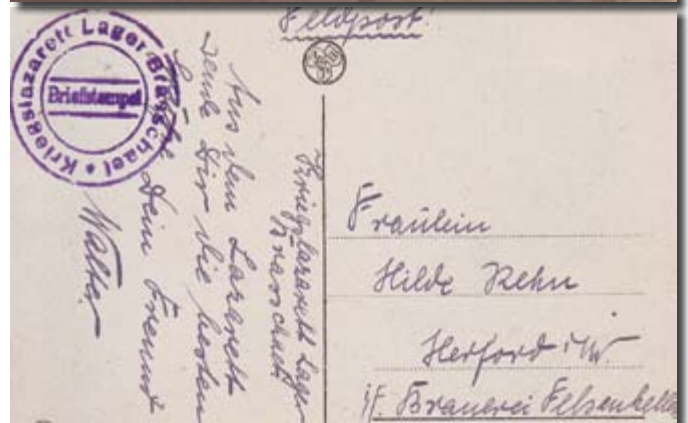 Feldpost!
Kriegslazarett Lager Braschaet
Briefstempel
Aus dem Lazarett
sende Dir die besten
Grüße Dein Freund
Walter
Kriegslazarett Lager
Braschaet
Fräulein
Hilde Rehn
Herford i/W.
Brauerei Felsenkeller